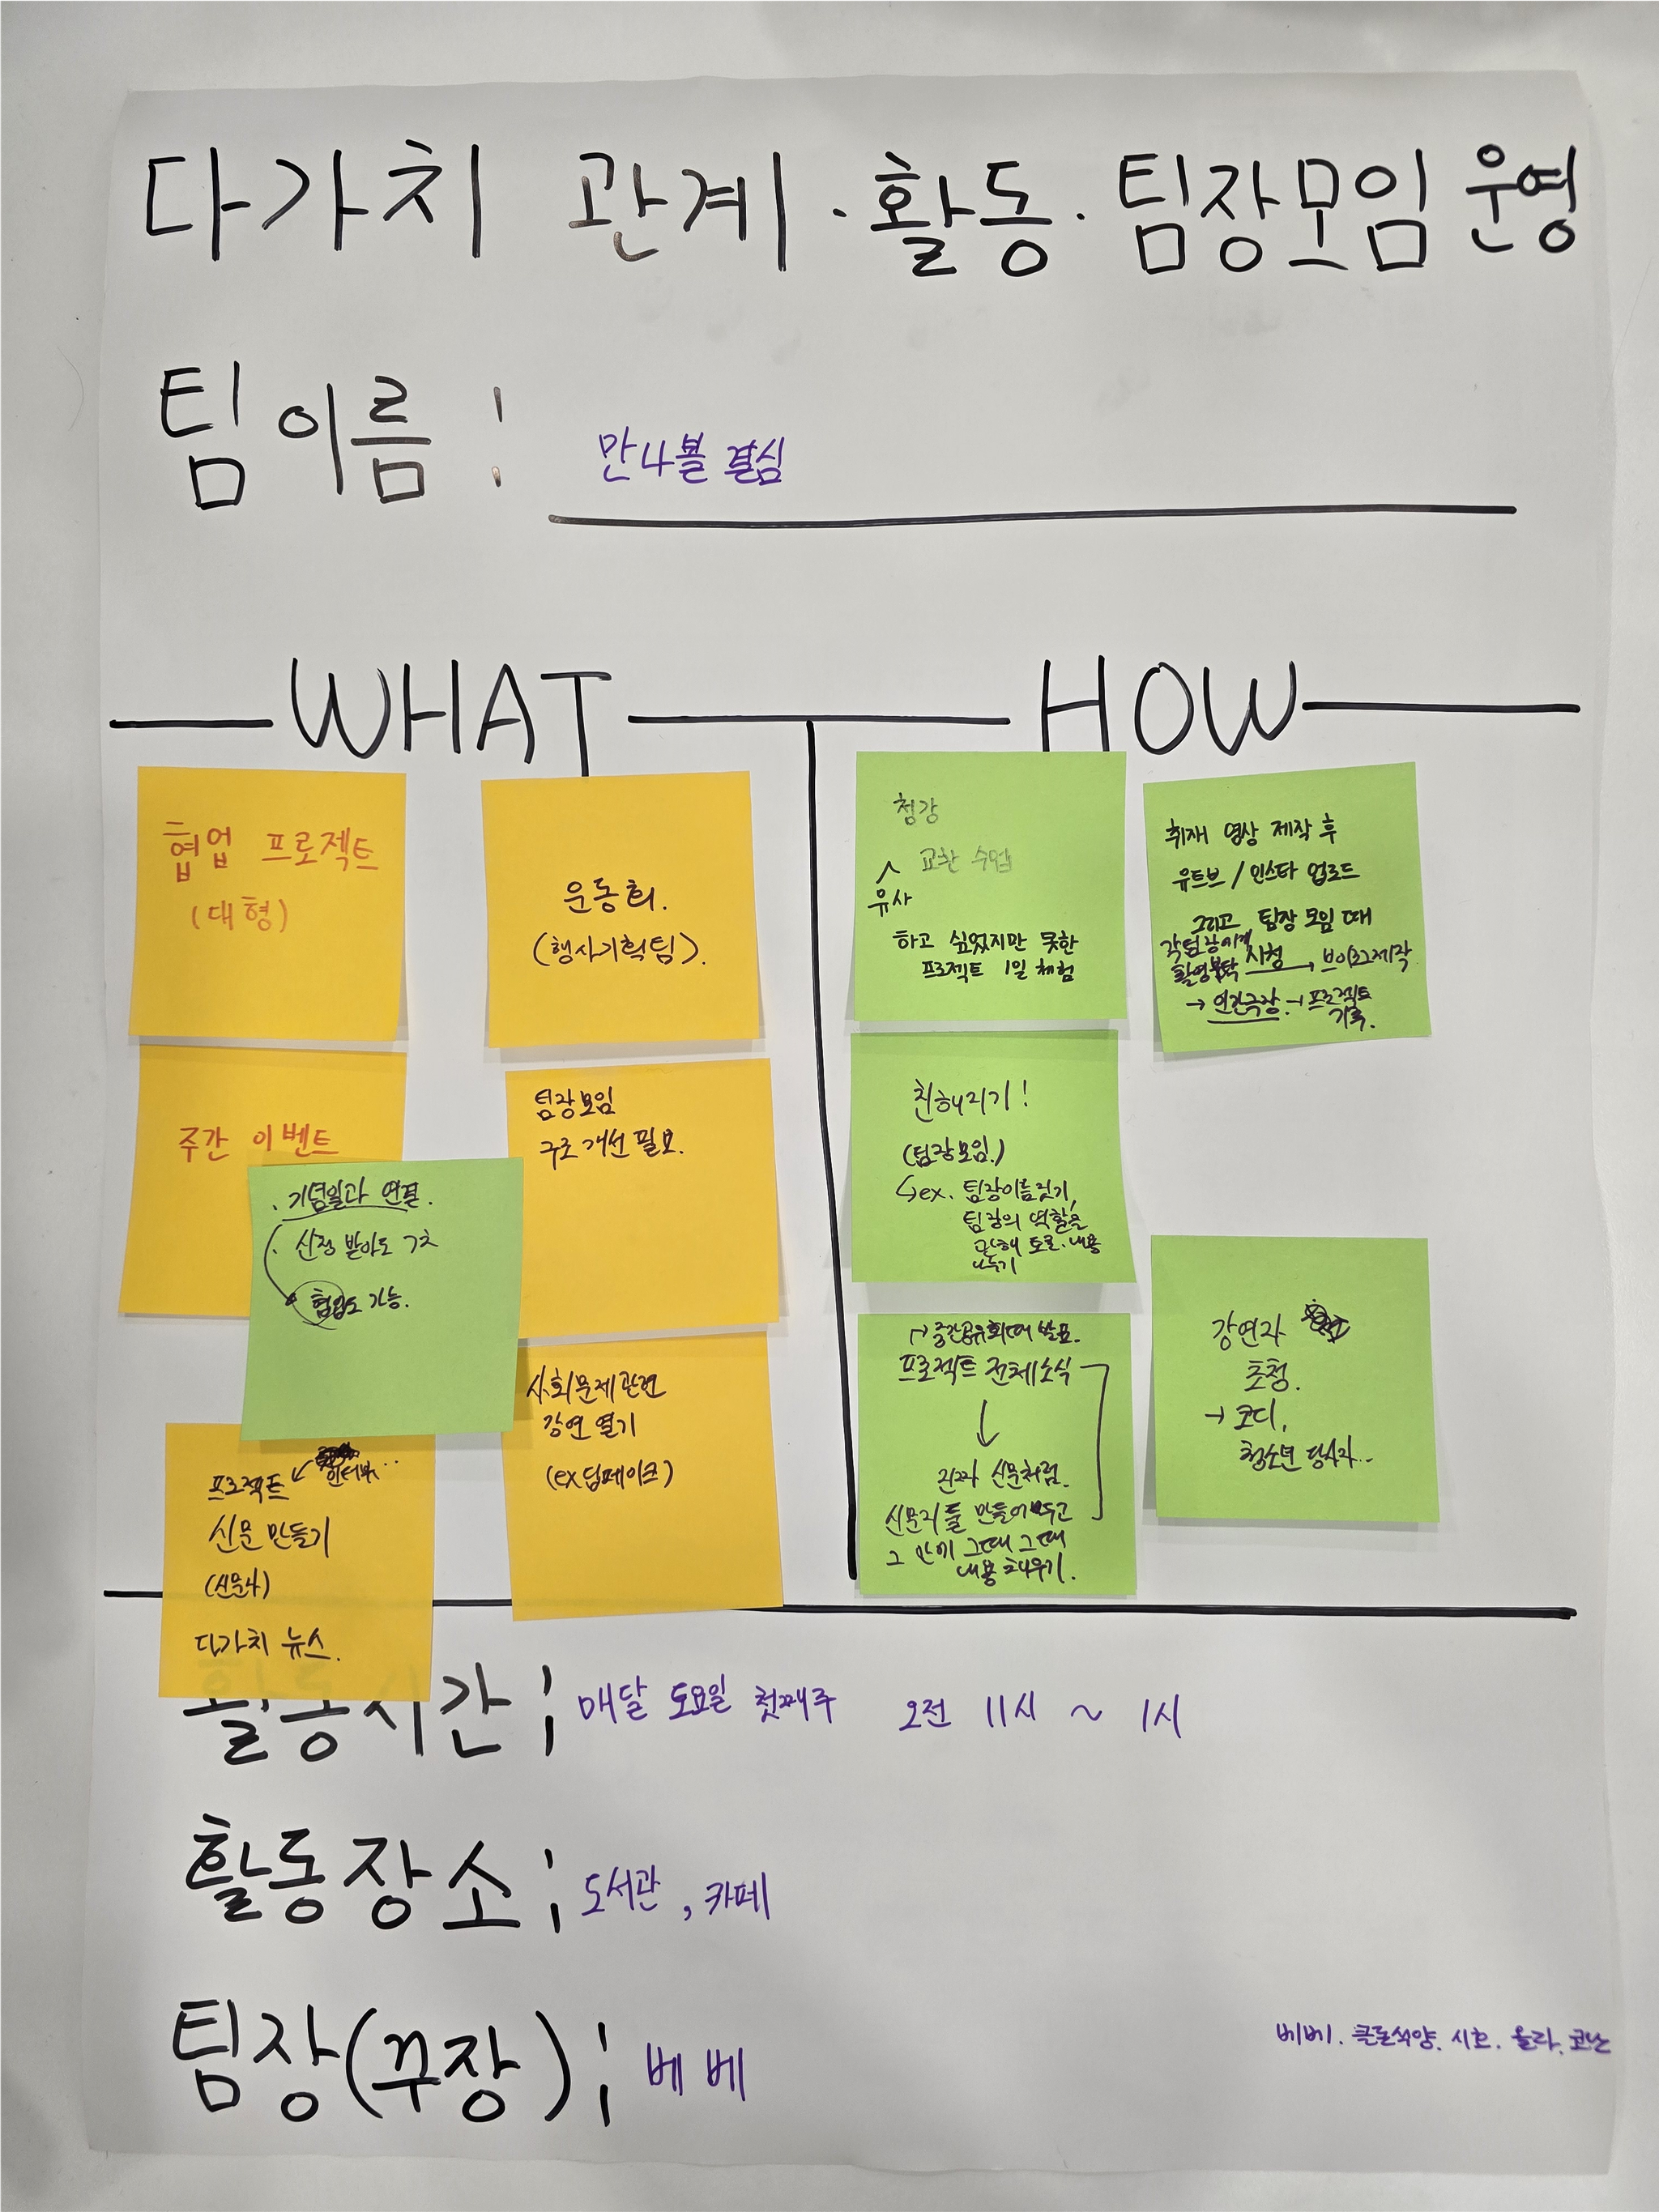 다가치 관계·활동·팀장모임 운영
팀이름 : 만나볼 결심
WHAT
협업 프로젝트
(대형)
운동회.
(행사기획팀).
주간 이벤트
· 기념일과 연결.
· 신청 받아도 굿
협업도 가능.
팀장모임
구조 개선 필요.
프로젝트 ↙ 인터뷰...
신문 만들기
(신문사)
다가치 뉴스.
사회문제 관련
강연 열기
(ex 딥페이크)
HOW
청강
교환 수업
유사
하고 싶었지만 못한
프로젝트 1일 체험
취재 영상 제작 후
유트브 / 인스타 업로드
그리고 팀장 모임 때
각 팀장에게 시청
촬영부탁 → 브이로그제작
→ 인간극장 → 프로젝트
기록.
친해지기!
(팀장모임.)
↳ex. 팀장이름짓기,
팀장의 역할을
토론. 내용
나누기
↱중간공유회때 발표.
프로젝트 전체소식
↓
진짜 신문처럼.
신문지를 만들어두고
그 안에 그때 그때
내용 채우기.
강연자
초청.
→ 코디,
청소년 당사자..
활동시간 ; 매달 토요일 첫째주 오전 11시 ~ 1시
활동장소 ; 도서관, 카페
팀장(꾸장) ; 베베
베베. 큰돌석양. 시호. 율라. 코난